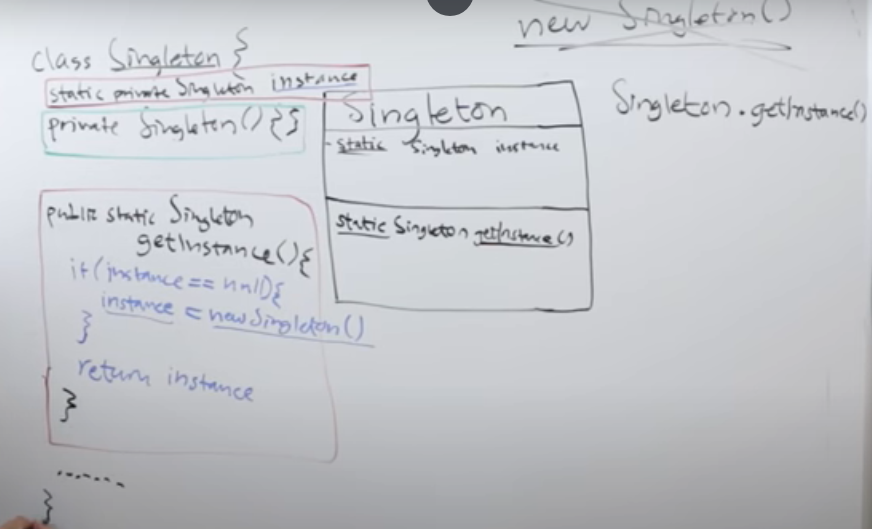 new Singleton()
class Singleton {
static private Singleton instance
private Singleton() {}
public static Singleton
getInstance() {
if (instance == null) {
instance = new Singleton()
}
return instance
}
.......
}
Singleton
- static Singleton instance
static Singleton getInstance()
Singleton.getInstance()